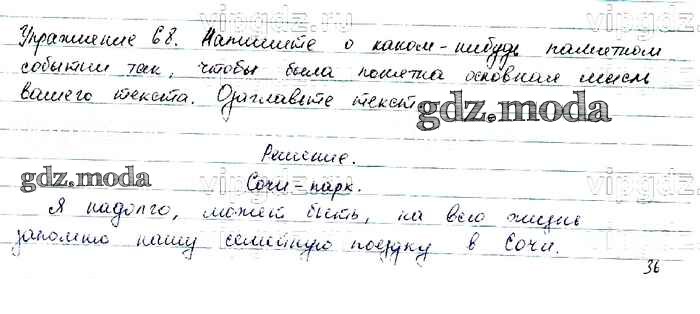 vipgdz.ru
Упражнение 68. Напишите о каком-нибудь памятном
событии так, чтобы была понятна основная мысль
вашего текста. Озаглавьте текст
gdz.moda
Решение.
gdz.moda vipgdz
Сочи-парк.
Я надолго, может быть, на всю жизнь
запомню нашу семейную поездку в Сочи.
36